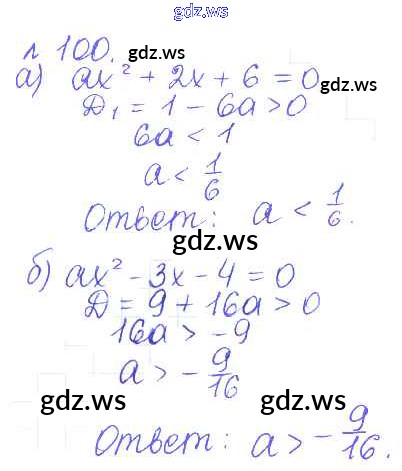 gdz.ws
№ 100. gdz.ws
а) ax² + 2x + 6 = 0
Д₁ = 1 − 6a > 0
6a < 1
a < 1/6
Ответ: a < 1/6.
gdz.ws
б) ax² − 3x − 4 = 0
Д = 9 + 16a > 0
16a > −9
a > − 9/16
gdz.ws gdz.ws
Ответ: a > − 9/16.
gdz.ws